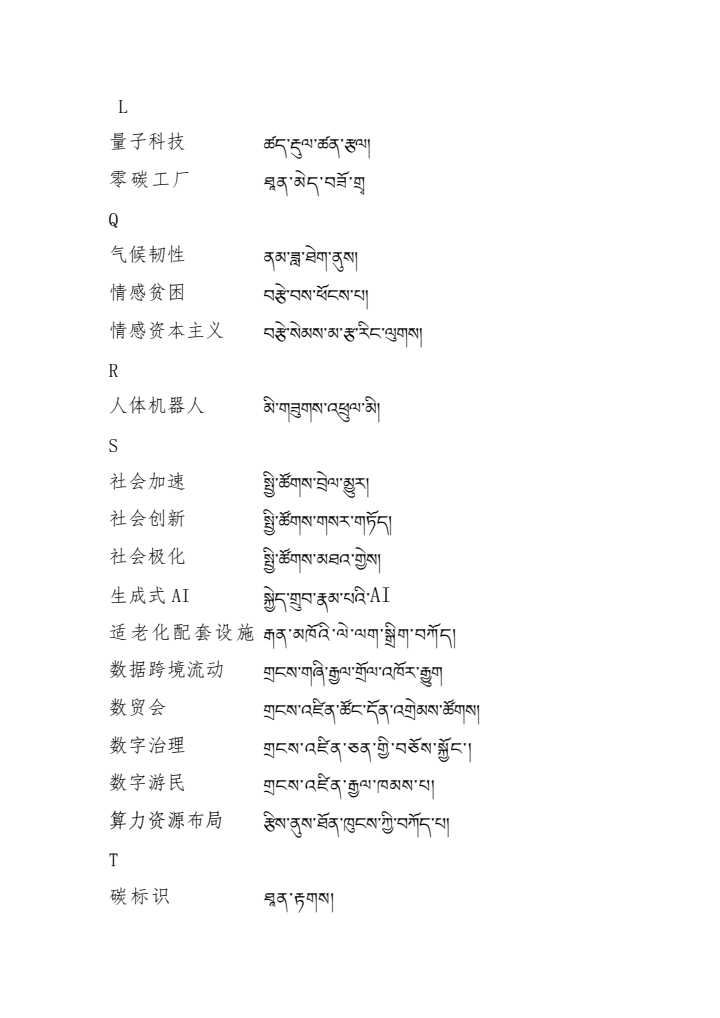 L
量子科技 ཚད་རྡུལ་ཚན་རྩལ།
零碳工厂 ཐན་མེད་བཟོ་གྲྭ
Q
气候韧性 ནམ་ཟླ་ཐེག་ནུས།
情感贫困 བརྩེ་བས་ཕོངས་པ།
情感资本主义 བརྩེ་སེམས་མ་རྩ་རིང་ལུགས།
R
人体机器人 མི་གཟུགས་འཕྲུལ་མི།
S
社会加速 སྤྱི་ཚོགས་བྲེལ་མྱུར།
社会创新 སྤྱི་ཚོགས་གསར་གཏོད།
社会极化 སྤྱི་ཚོགས་མཐའ་གྱེས།
生成式 AI སྐྱེད་གྲུབ་རྣམ་པའི་AI
适老化配套设施 རྒན་མཁོའི་ལེ་ལག་སྒྲིག་བཀོད།
数据跨境流动 གྲངས་གཞི་རྒྱལ་གྲོལ་འཁོར་རྒྱུག
数贸会 གྲངས་འཛིན་ཚོང་དོན་འགྲེམས་ཚོགས།
数字治理 གྲངས་འཛིན་ཅན་གྱི་བཅོས་སྐྱོང་།
数字游民 གྲངས་འཛིན་རྒྱལ་ཁམས་པ།
算力资源布局 རྩིས་ནུས་ཐོན་ཁུངས་ཀྱི་བཀོད་པ།
T
碳标识 ཐན་རྟགས།